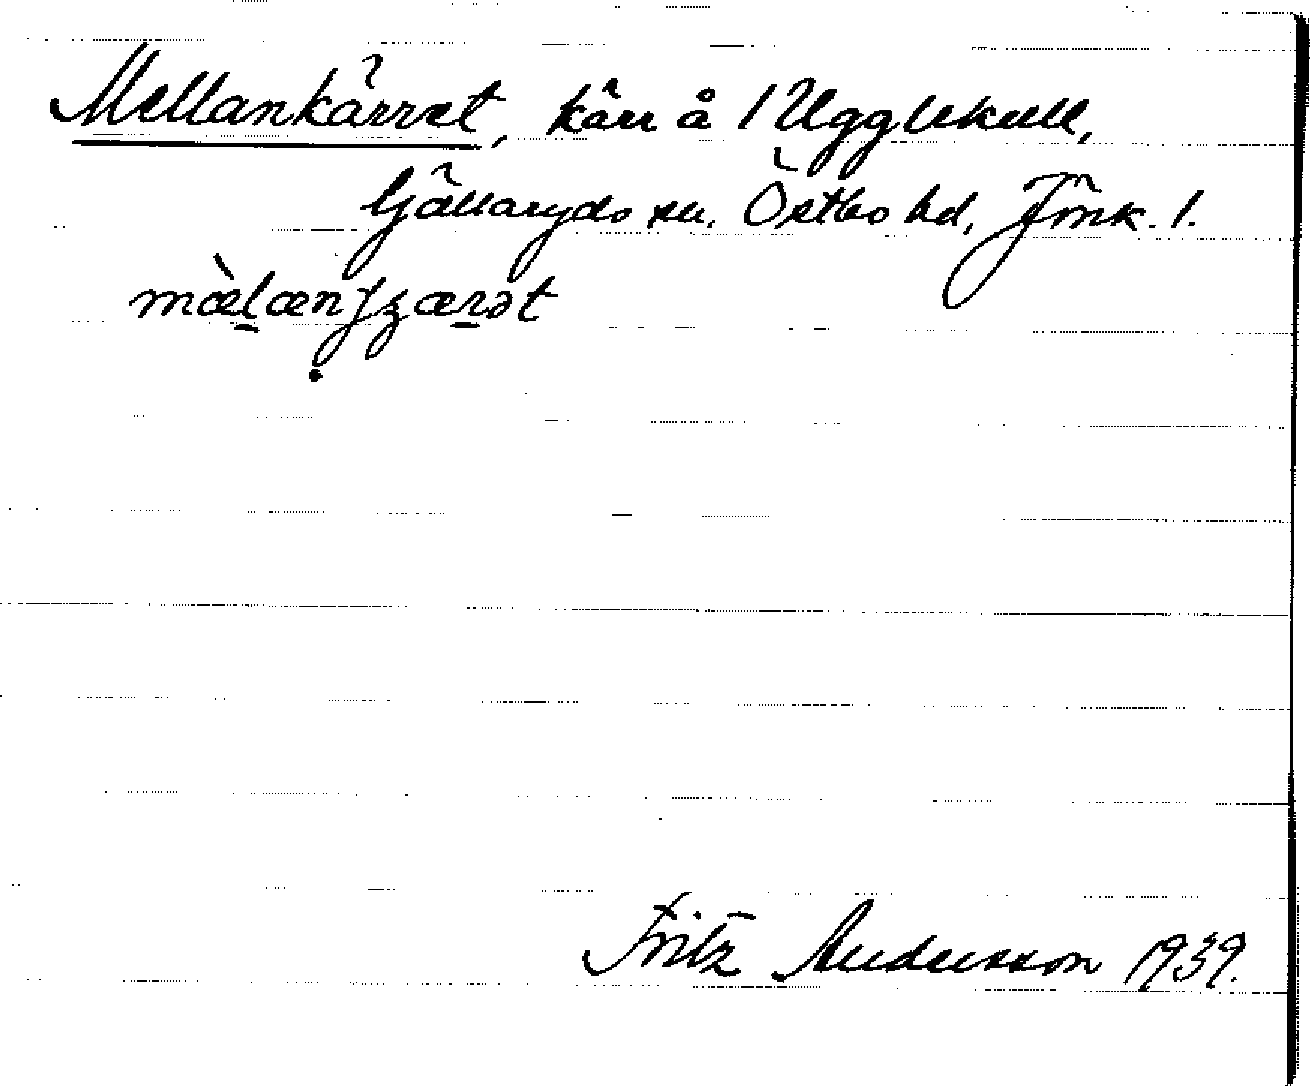 Mellankärret, kärr å 1 Ugglekull,
Gällaryds sn. Östbo hd, Jönk. l.
mæ̀l̠ænʃzær̠ət
Fritz Andersson 1939.